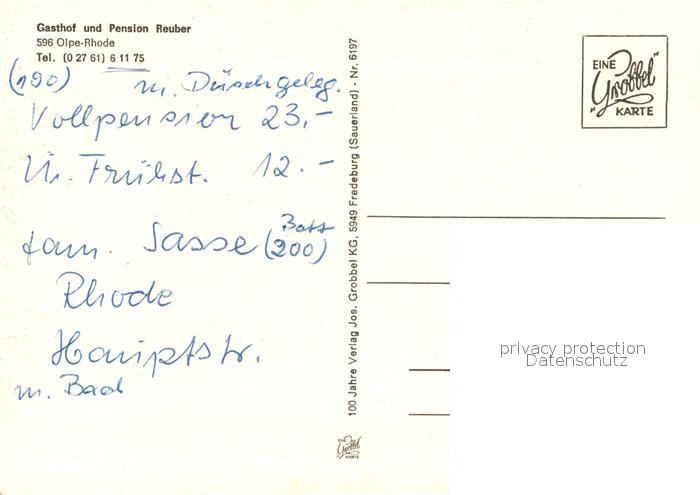 Gasthof und Pension Reuber
596 Olpe-Rhode
Tel. (0 27 61) 6 11 75
(190) m. Duschgeleg.
Vollpension 23,-
Ü. Frühst. 12.-
Fam. Sasse (200)
Rhode
Hauptstr.
m. Bad
100 Jahre Verlag Jos. Grobbel KG, 5949 Fredeburg (Sauerland) - Nr. 6197
EINE
„Grobbel"
KARTE
privacy protection
Datenschutz
EINE
„Grobbel"
KARTE